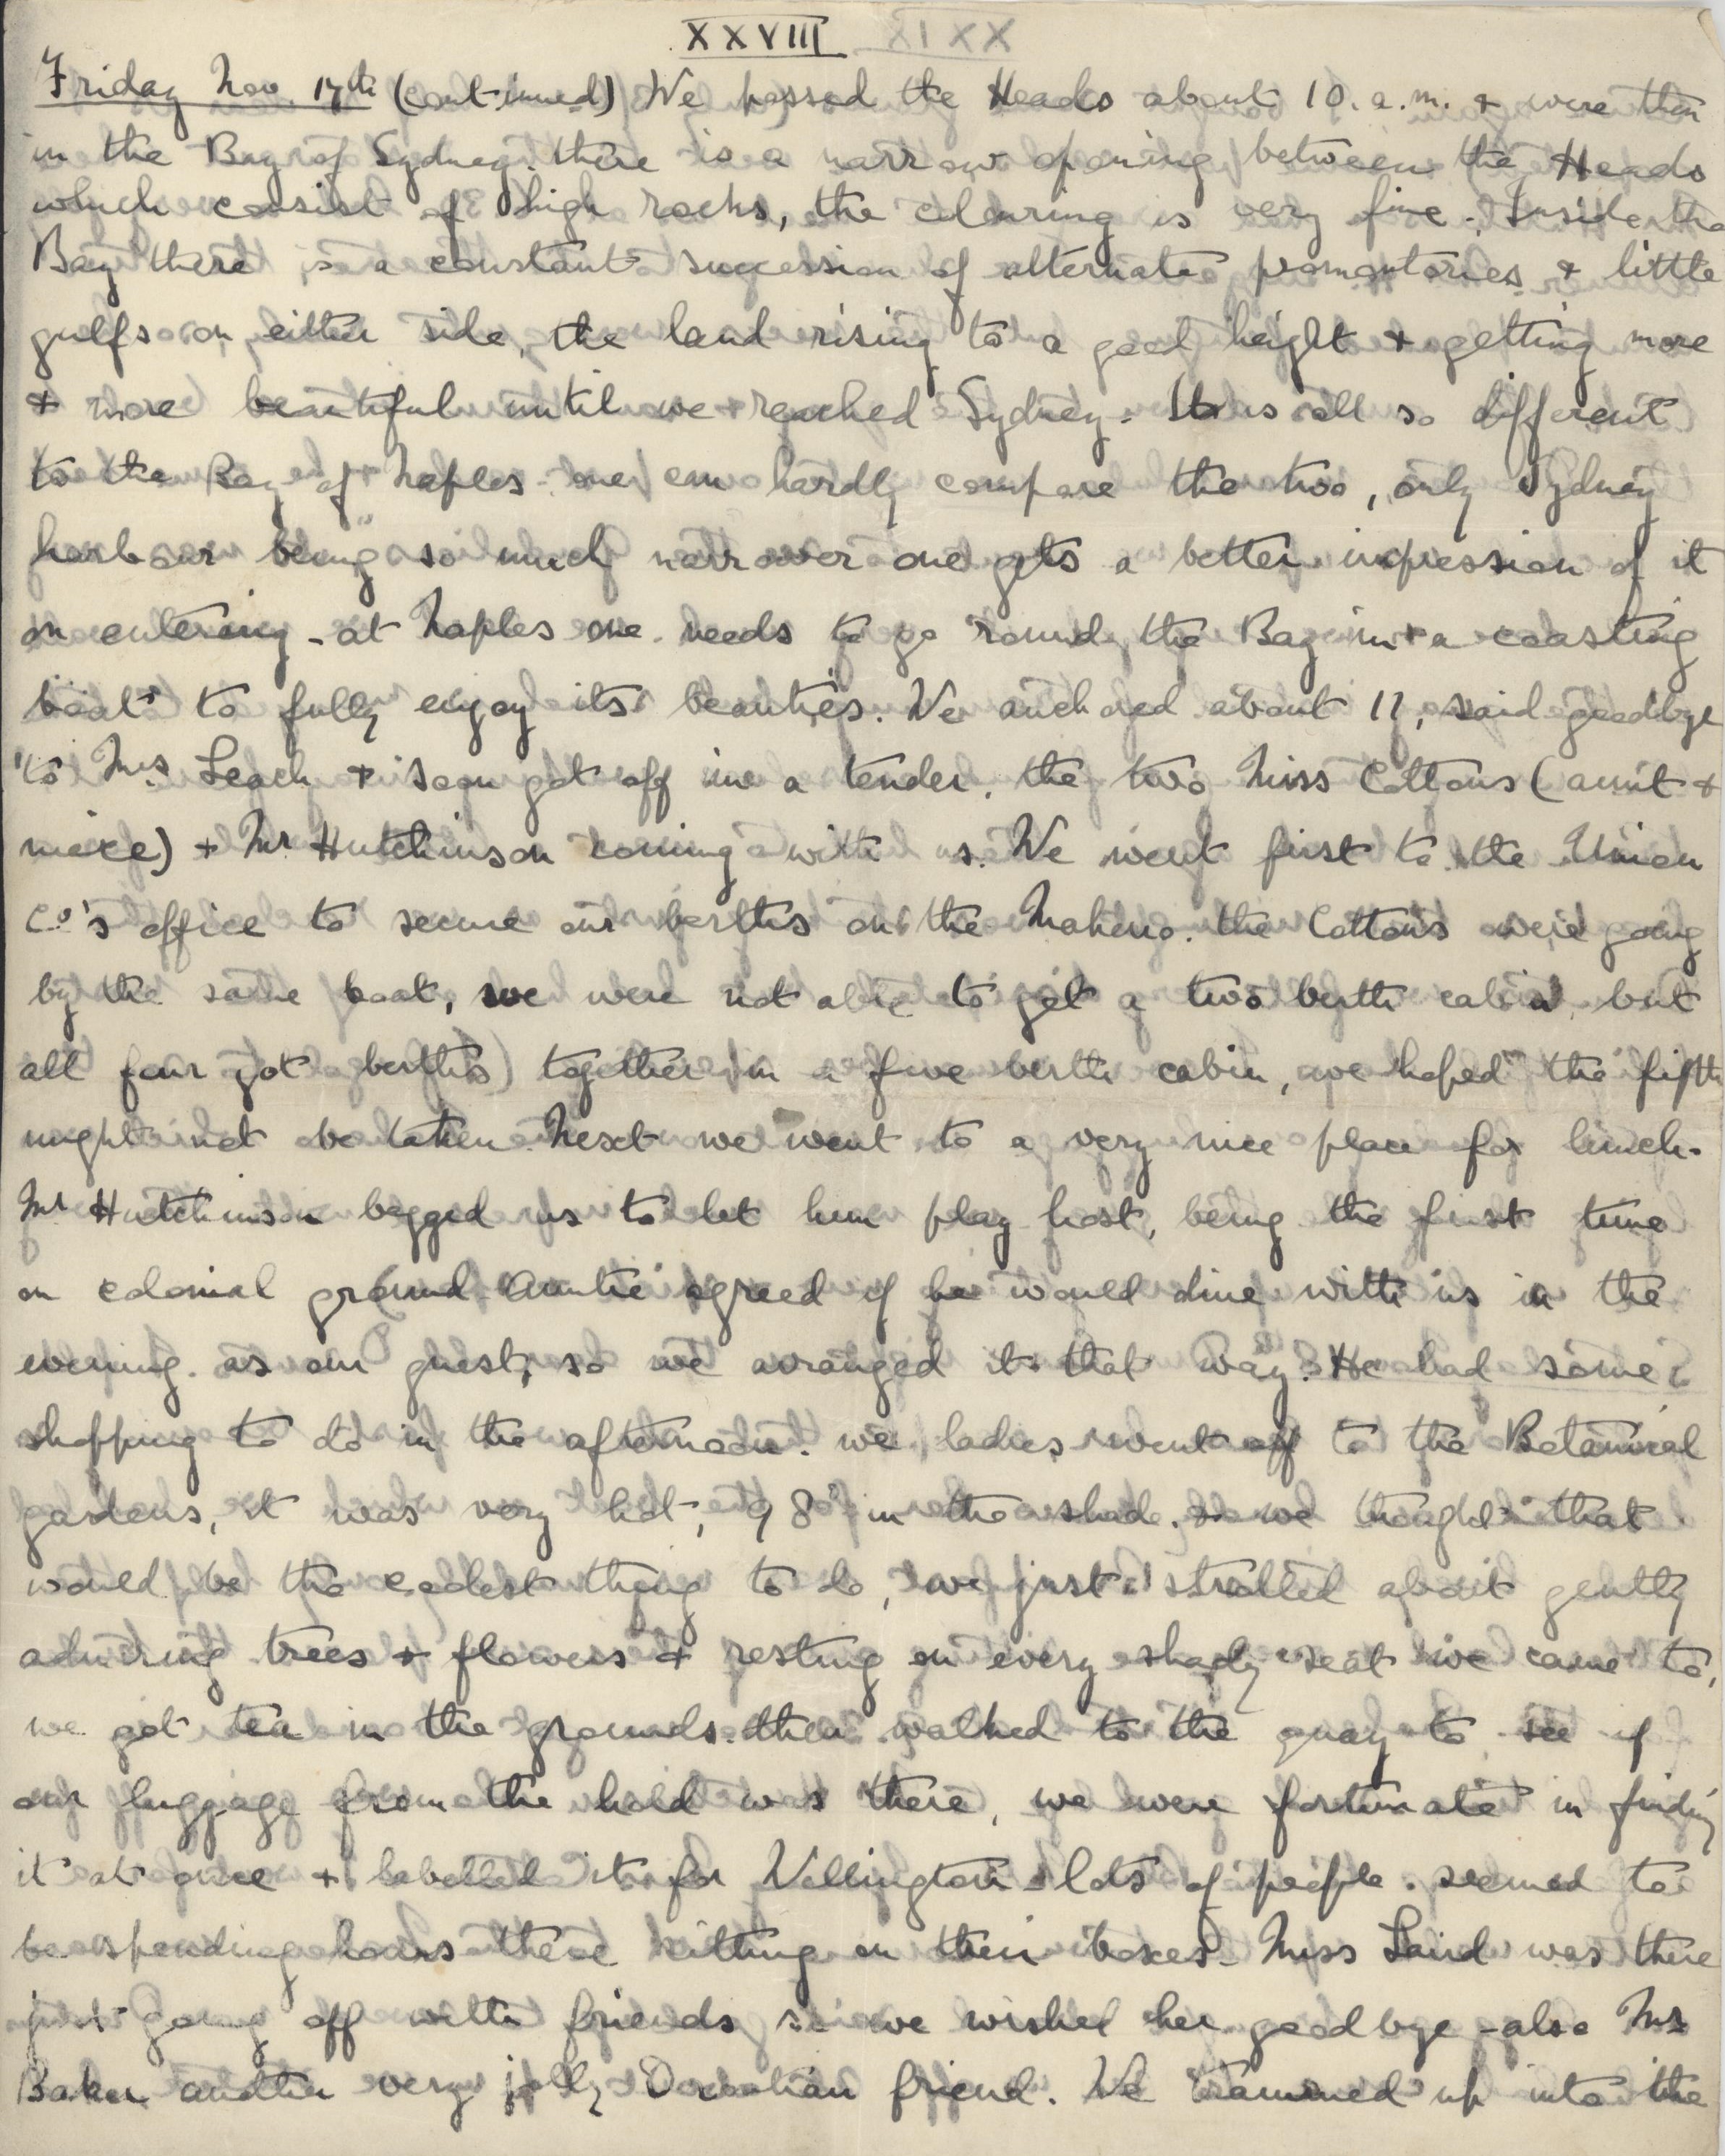 XXVIII
Friday Nov. 17th (continued) We passed the Heads about 10. a.m. & were then
in the Bay of Sydney. there is a narrow opening between the Heads
which consist of high rocks, the colouring is very fine. Inside the
Bay there is a constant succession of alternate promontories & little
gulfs on either side, the land rising to a good height & getting more
& more beautiful until we reached Sydney. It is all so different
to the Bay of Naples one can hardly compare the two, only Sydney
harbour being so much narrower one gets a better impression of it
on entering - at Naples one needs to go round the Bay in a coasting
boat to fully enjoy its beauties. We anchored about 11, said goodbye
to Mrs Leach & soon got off in a tender, the two Miss Cottons (aunt &
niece) & Mr Hutchinson coming with us. We went first to the Union
Co's office to secure our berths on the Maheno. the Cottons were going
by the same boat, we were not able to get a two berth cabin but
all four got berths together in a five berth cabin, we hoped the fifth
might not be taken. Next we went to a very nice place for lunch.
Mr Hutchinson begged us to let him play host, being the first time
on colonial ground. Auntie agreed if he would dine with us in the
evening as our guest, so we arranged it that way. He had some
shopping to do in the afternoon. we ladies went off to the Botanical
gardens, it was very hot, 98° in the shade. & we thought that
would be the coolest thing to do, we just strolled about gently
admiring trees & flowers & resting on every shady seat we came to,
we got tea in the grounds. then walked to the quay to see if
our luggage from the hold was there, we were fortunate in finding
it at once & labelled it for Wellington - lots of people seemed to
be spending hours there sitting on their boxes. Miss Laird was there
just going off with friends so we wished her goodbye - also Mr
Baker another very jolly friend. We trammed up into the